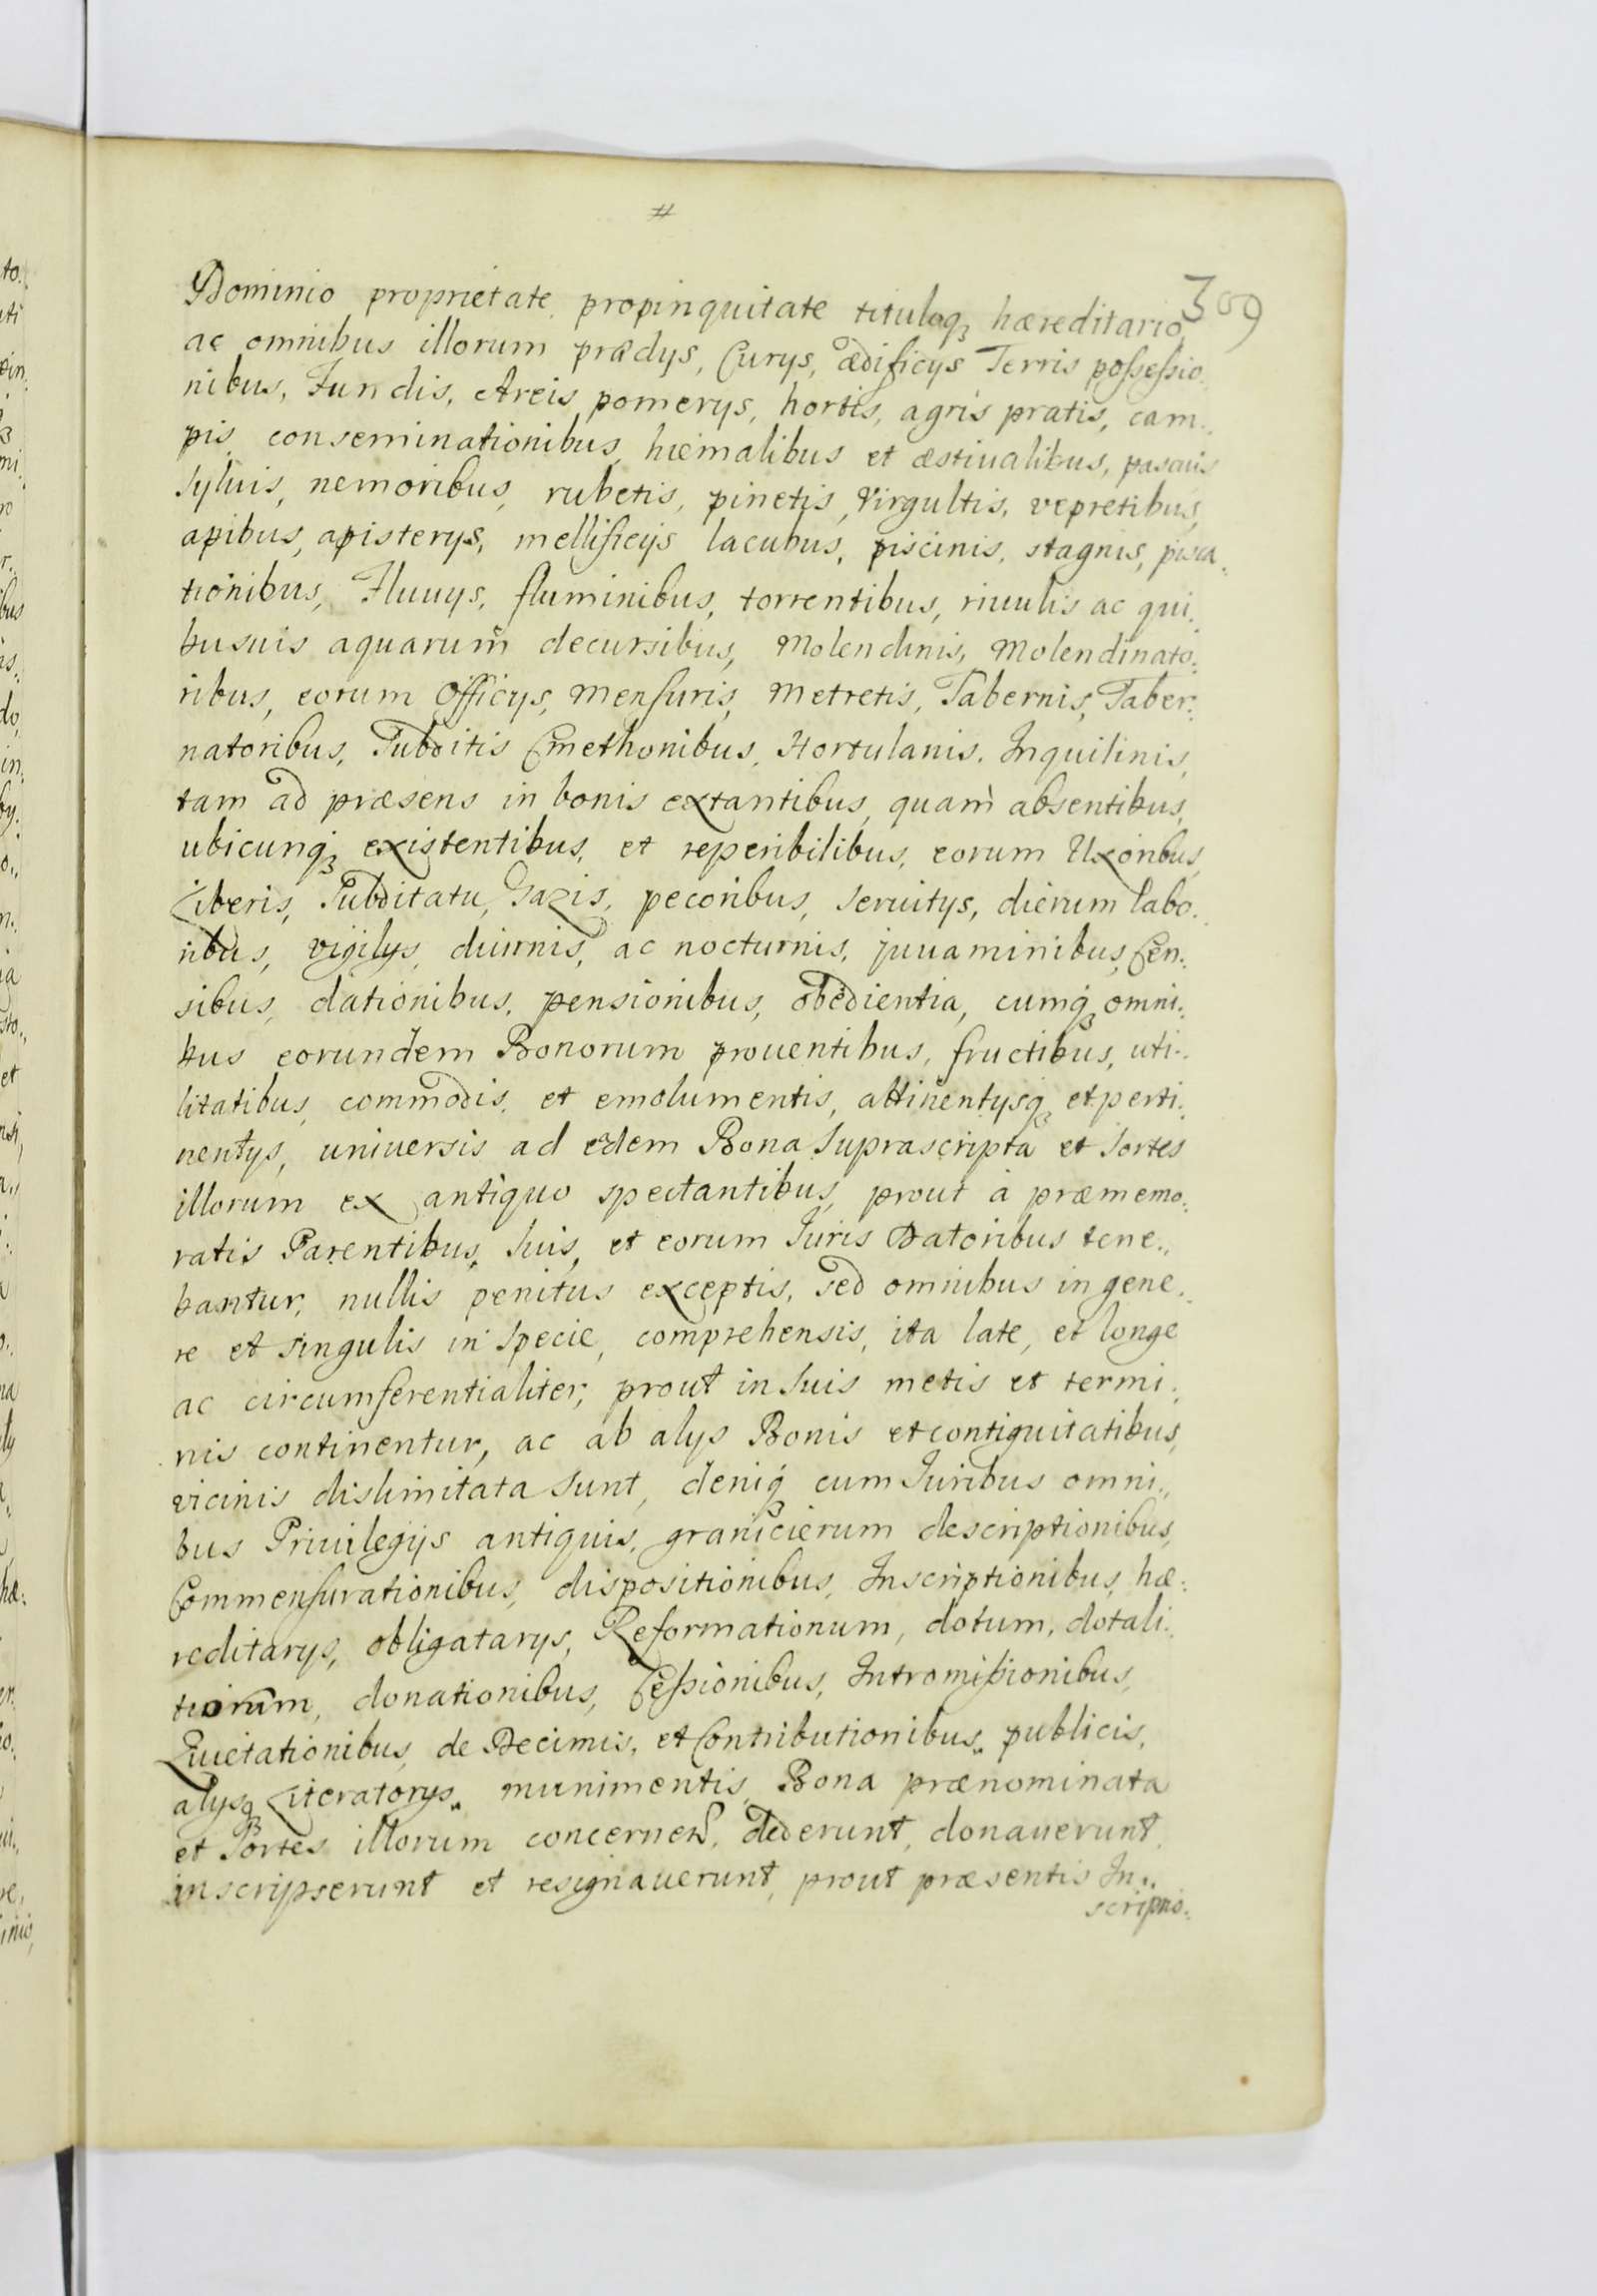 #
309
Dominio proprietate, propinquitate tituloq3 hæreditario
ac omnibus illorum prædys, Curys, ædificys Terris possessio..
nibus, Fundis, Areis pomerys, hortis, agris pratis, cam..
pis, conseminationibus, hiemalibus et æstiualibus, pascuis
Syluis, nemoribus, rubetis, pinetis, Virgultis, vepretibus,
apibus, apisterys, mellificijs lacubus, piscinis, stagnis, pisca..
tionibus, Fluuys, fluminibus, torrentibus, riuulis ac qui..
busuis aquarum decursibus, Molendinis, Molendinato..
ribus, eorum Officys, Mensuris, Metretis, Tabernis, Taber..
natoribus, Subditis Cmethonibus, Hortulanis, Inquilinis,
tam ad præsens in bonis extantibus, quam absentibus,
ubicunq3 existentibus, et reperibilibus, eorum Uxoribus,
Liberis, Subditatu, Gazis, pecoribus, Seruitys, dierum labo..
ribus, vigilys, diurnis, ac nocturnis, juuaminibus, Cen..
sibus, dationibus, pensionibus, obedientia, cumq3 omni..
bus eorundem Bonorum prouentibus, fructibus, uti..
litatibus, commodis, et emolumentis, attinentysq3 et perti..
nentys, universis ad edem Bona Suprascripta et Sortes
illorum ex antiquo spectantibus, prout à præmemo..
ratis Parentibus, Suis, et eorum Juris Datoribus tene..
bantur, nullis penitus exceptis, Sed omnibus in gene..
re et Singulis in Specie, comprehensis, ita late, et longe
ac circumferentialiter, prout in Suis metis et termi..
nis continentur, ac ab alys Bonis et contiguitatibus,
vicinis dislimitata Sunt, deniq3 cum Juribus omni..
bus Priuilegijs antiquis, granicierum descriptionibus,
Commensurationibus, dispositionibus, Inscriptionibus, hæ..
reditarys, obligatarys, Reformationum, dotum, dotali..
tiorum, donationibus, Cessionibus, Intromissionibus,
Quietationibus, de Decimis, et Contributionibus, publicis,
alysq3 Literatorys, munimentis, Bona prænominata
et Sortes illorum concernen. dederunt, donauerunt,
inscripserunt et resignauerunt, prout præsentis In..
scriptio..